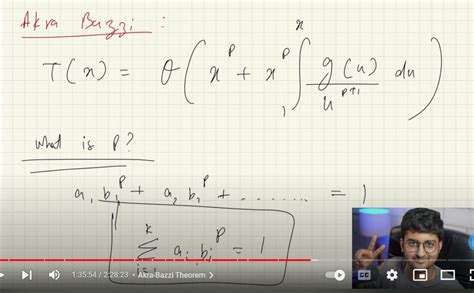 Akra Bazzi :
T(x) = θ( x^p + x^p ∫_1^x g(u)/u^{p+1} du )
What is P?
a, b,^p + a, b,^p + ........ = 1
∑_{i=1}^k a_i b_i^p = 1
1:35:54 / 2:28:23 • Akra-Bazzi Theorem >
CC